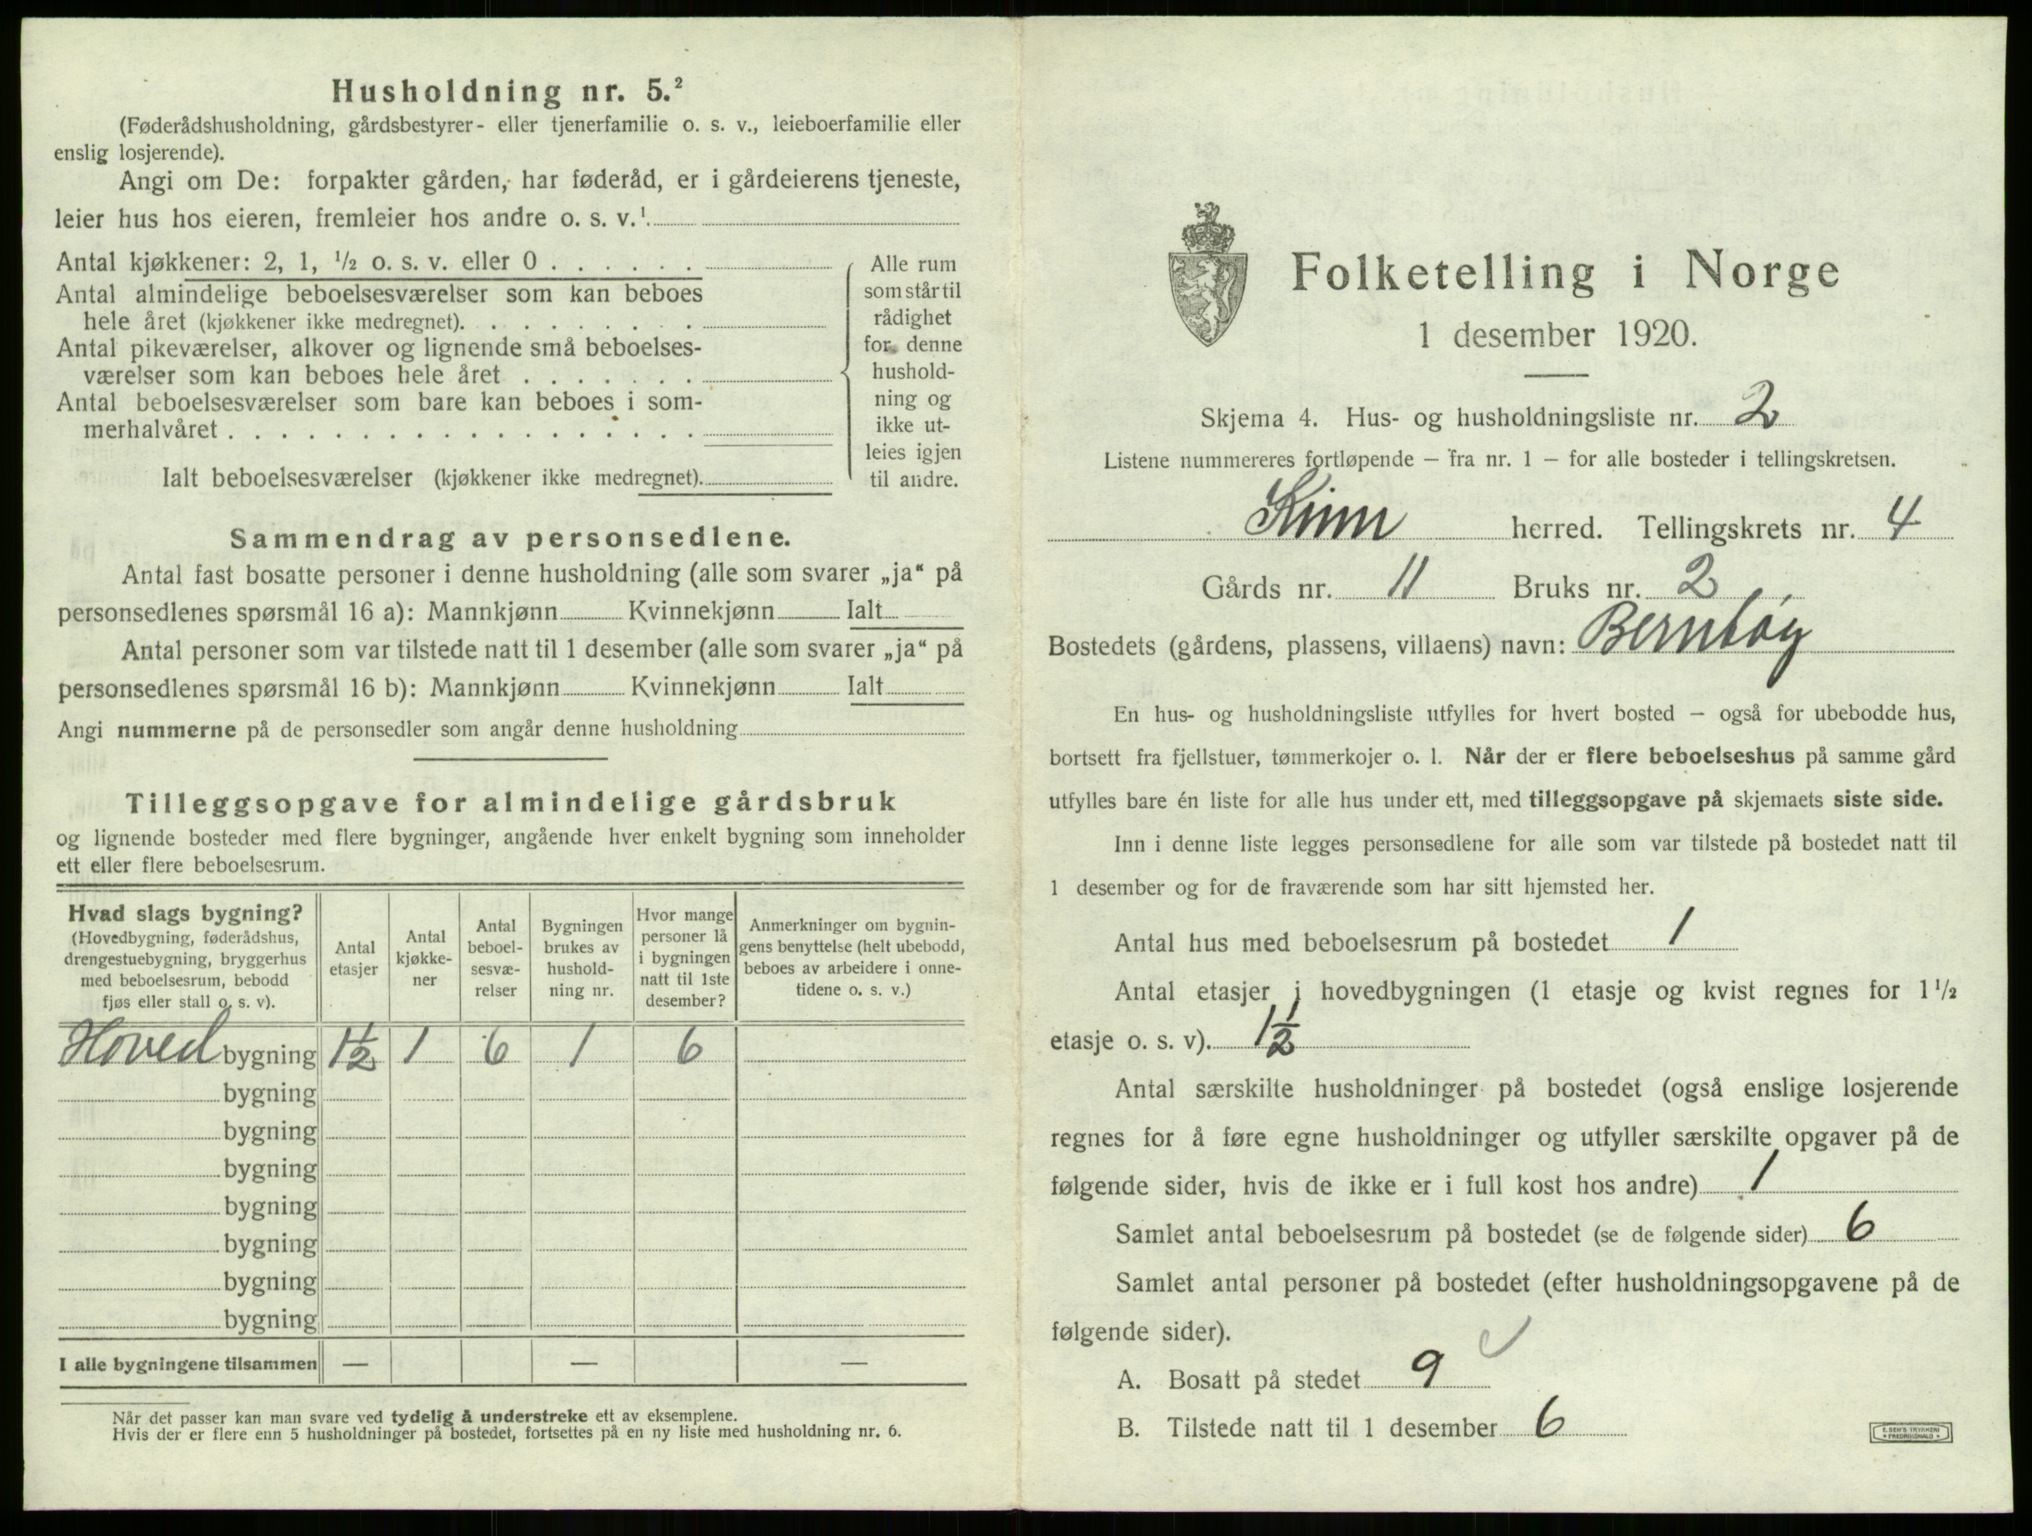 Husholdning nr. 5.²
(Føderådshusholdning, gårdsbestyrer- eller tjenerfamilie o. s. v., leieboerfamilie eller
enslig losjerende).
Angi om De: forpakter gården, har føderåd, er i gårdeierens tjeneste,
leier hus hos eieren, fremleier hos andre o. s. v.¹
Antal kjøkkener: 2, 1, ½ o. s. v. eller 0 . . . . . .
Antal almindelige beboelsesværelser som kan beboes
hele året (kjøkkener ikke medregnet). . . . . . . . .
Antal pikeværelser, alkover og lignende små beboelses-
værelser som kan beboes hele året . . . . . . .
Antal beboelsesværelser som bare kan beboes i som-
merhalvåret . . . . . . . . . . . . . . . . . .
Ialt beboelsesværelser (kjøkkener ikke medregnet).
Alle rum
som står til
rådighet
for denne
hushold-
ning og
ikke ut-
leies igjen
til andre.
Sammendrag av personsedlene.
Antal fast bosatte personer i denne husholdning (alle som svarer „ja“ på
personsedlenes spørsmål 16 a): Mannkjønn Kvinnekjønn Ialt
Antal personer som var tilstede natt til 1 desember (alle som svarer „ja“ på
personsedlenes spørsmål 16 b): Mannkjønn Kvinnekjønn Ialt
Angi nummerne på de personsedler som angår denne husholdning
Tilleggsopgave for almindelige gårdsbruk
og lignende bosteder med flere bygninger, angående hver enkelt bygning som inneholder
ett eller flere beboelsesrum.
Hvad slags bygning?
(Hovedbygning, føderådshus,
drengestuebygning, bryggerhus
med beboelsesrum, bebodd
fjøs eller stall o. s. v).
Antal
etasjer
Antal
kjøkke-
ner
Antal
beboel-
sesvæ-
relser
Bygningen
brukes av
hushold-
ning nr.
Hvor mange
personer lå
i bygningen
natt til 1ste
desember?
Anmerkninger om bygnin-
gens benyttelse (helt ubebodd,
beboes av arbeidere i onne-
tidene o. s. v.)
Hoved bygning 1½ 1 6 1 6
bygning
bygning
bygning
bygning
bygning
bygning
bygning
I alle bygningene tilsammen — — —
Når det passer kan man svare ved tydelig å understreke ett av eksemplene.
Hvis der er flere enn 5 husholdninger på bostedet, fortsettes på en ny liste med husholdning nr. 6.
Folketelling i Norge
1 desember 1920.
Skjema 4. Hus- og husholdningsliste nr. 2
Listene nummereres fortløpende – fra nr. 1 – for alle bosteder i tellingskretsen.
Kinn herred. Tellingskrets nr. 4
Gårds nr. 11 Bruks nr. 2
Bostedets (gårdens, plassens, villaens) navn: Berntøy
En hus- og husholdningsliste utfylles for hvert bosted – også for ubebodde hus,
bortsett fra fjellstuer, tømmerkojer o. l. Når der er flere beboelseshus på samme gård
utfylles bare én liste for alle hus under ett, med tilleggsopgave på skjemaets siste side.
Inn i denne liste legges personsedlene for alle som var tilstede på bostedet natt til
1 desember og for de fraværende som har sitt hjemsted her.
Antal hus med beboelsesrum på bostedet 1
Antal etasjer i hovedbygningen (1 etasje og kvist regnes for 1½
etasje o. s. v). 1½
Antal særskilte husholdninger på bostedet (også enslige losjerende
regnes for å føre egne husholdninger og utfyller særskilte opgaver på de
følgende sider, hvis de ikke er i full kost hos andre) 1
Samlet antal beboelsesrum på bostedet (se de følgende sider) 6
Samlet antal personer på bostedet (efter husholdningsopgavene på de
følgende sider).
A. Bosatt på stedet 9
B. Tilstede natt til 1 desember 6